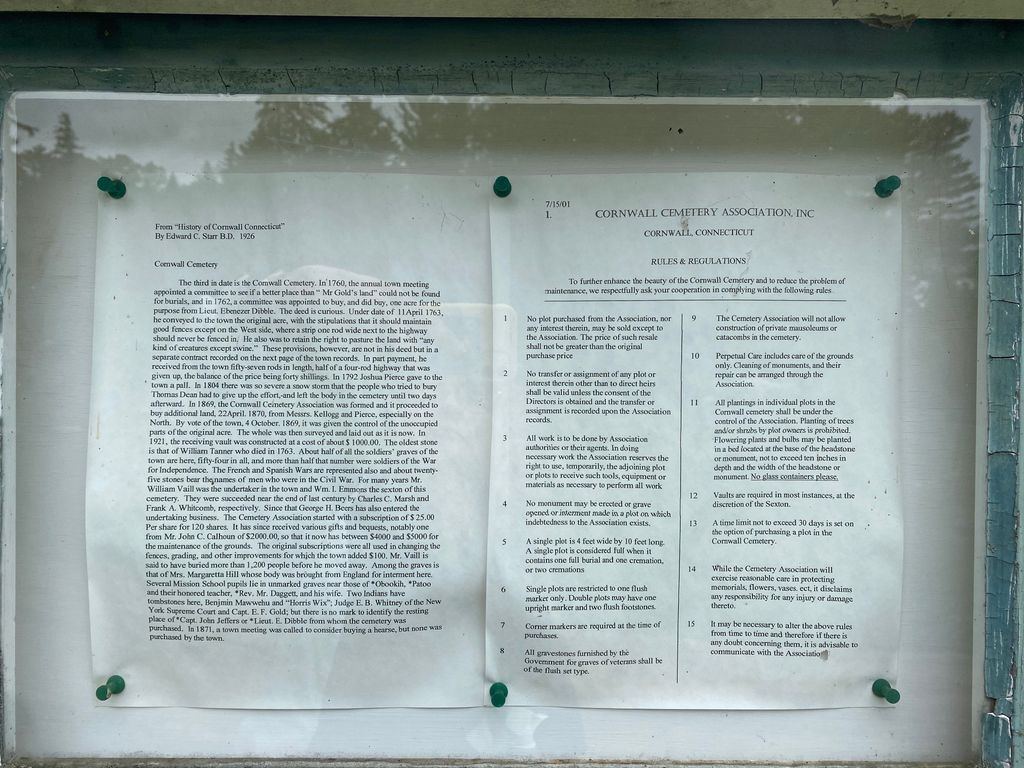 From "History of Cornwall Connecticut"
By Edward C. Starr B.D. 1926
Cornwall Cemetery
The third in date is the Cornwall Cemetery. In 1760, the annual town meeting
appointed a committee to see if a better place than " Mr Gold's land" could not be found
for burials, and in 1762, a committee was appointed to buy, and did buy, one acre for the
purpose from Lieut. Ebenezer Dibble. The deed is curious. Under date of 11April 1763,
he conveyed to the town the original acre, with the stipulations that it should maintain
good fences except on the West side, where a strip one rod wide next to the highway
should never be fenced in. He also was to retain the right to pasture the land with "any
kind of creatures except swine." These provisions, however, are not in his deed but in a
separate contract recorded on the next page of the town records. In part payment, he
received from the town fifty-seven rods in length, half of a four-rod highway that was
given up, the balance of the price being forty shillings. In 1792 Joshua Pierce gave to the
town a pall. In 1804 there was so severe a snow storm that the people who tried to bury
Thomas Dean had to give up the effort, and left the body in the cemetery until two days
afterward. In 1869, the Cornwall Cemetery Association was formed and it proceeded to
buy additional land, 22April. 1870, from Messrs. Kellogg and Pierce, especially on the
North. By vote of the town, 4 October. 1869, it was given the control of the unoccupied
parts of the original acre. The whole was then surveyed and laid out as it is now. In
1921, the receiving vault was constructed at a cost of about $ 1000.00. The oldest stone
is that of William Tanner who died in 1763. About half of all the soldiers' graves of the
town are here, fifty-four in all, and more than half that number were soldiers of the War
for Independence. The French and Spanish Wars are represented also and about twenty-
five stones bear the names of men who were in the Civil War. For many years Mr.
William Vaill was the undertaker in the town and Wm. I. Emmons the sexton of this
cemetery. They were succeeded near the end of last century by Charles C. Marsh and
Frank A. Whitcomb, respectively. Since that George H. Beers has also entered the
undertaking business. The Cemetery Association started with a subscription of $ 25.00
Per share for 120 shares. It has since received various gifts and bequests, notably one
from Mr. John C. Calhoun of $2000.00, so that it now has between $4000 and $5000 for
the maintenance of the grounds. The original subscriptions were all used in changing the
fences, grading, and other improvements for which the town added $100. Mr. Vaill is
said to have buried more than 1,200 people before he moved away. Among the graves is
that of Mrs. Margaretta Hill whose body was brought from England for interment here.
Several Mission School pupils lie in unmarked graves near those of *Obookih, *Patoo
and their honored teacher, *Rev. Mr. Daggett, and his wife. Two Indians have
tombstones here, Benjmin Mawwehu and "Horris Wix"; Judge E. B. Whitney of the New
York Supreme Court and Capt. E. F. Gold; but there is no mark to identify the resting
place of *Capt. John Jeffers or *Lieut. E. Dibble from whom the cemetery was
purchased. In 1871, a town meeting was called to consider buying a hearse, but none was
purchased by the town.
7/15/01
1.
CORNWALL CEMETERY ASSOCIATION, INC
CORNWALL, CONNECTICUT
RULES & REGULATIONS
To further enhance the beauty of the Cornwall Cemetery and to reduce the problem of
maintenance, we respectfully ask your cooperation in complying with the following rules
1 No plot purchased from the Association, nor
any interest therein, may be sold except to
the Association. The price of such resale
shall not be greater than the original
purchase price
2 No transfer or assignment of any plot or
interest therein other than to direct heirs
shall be valid unless the consent of the
Directors is obtained and the transfer or
assignment is recorded upon the Association
records.
3 All work is to be done by Association
authorities or their agents. In doing
necessary work the Association reserves the
right to use, temporarily, the adjoining plot
or plots to receive such tools, equipment or
materials as necessary to perform all work
4 No monument may be erected or grave
opened or interment made in a plot on which
indebtedness to the Association exists.
5 A single plot is 4 feet wide by 10 feet long.
A single plot is considered full when it
contains one full burial and one cremation,
or two cremations
6 Single plots are restricted to one flush
marker only. Double plots may have one
upright marker and two flush footstones.
7 Corner markers are required at the time of
purchases.
8 All gravestones furnished by the
Government for graves of veterans shall be
of the flush set type.
9 The Cemetery Association will not allow
construction of private mausoleums or
catacombs in the cemetery.
10 Perpetual Care includes care of the grounds
only. Cleaning of monuments, and their
repair can be arranged through the
Association.
11 All plantings in individual plots in the
Cornwall cemetery shall be under the
control of the Association. Planting of trees
and/or shrubs by plot owners is prohibited.
Flowering plants and bulbs may be planted
in a bed located at the base of the headstone
or monument, not to exceed ten inches in
depth and the width of the headstone or
monument. No glass containers please.
12 Vaults are required in most instances, at the
discretion of the Sexton.
13 A time limit not to exceed 30 days is set on
the option of purchasing a plot in the
Cornwall Cemetery.
14 While the Cemetery Association will
exercise reasonable care in protecting
memorials, flowers, vases. ect, it disclaims
any responsibility for any injury or damage
thereto.
15 It may be necessary to alter the above rules
from time to time and therefore if there is
any doubt concerning them, it is advisable to
communicate with the Association